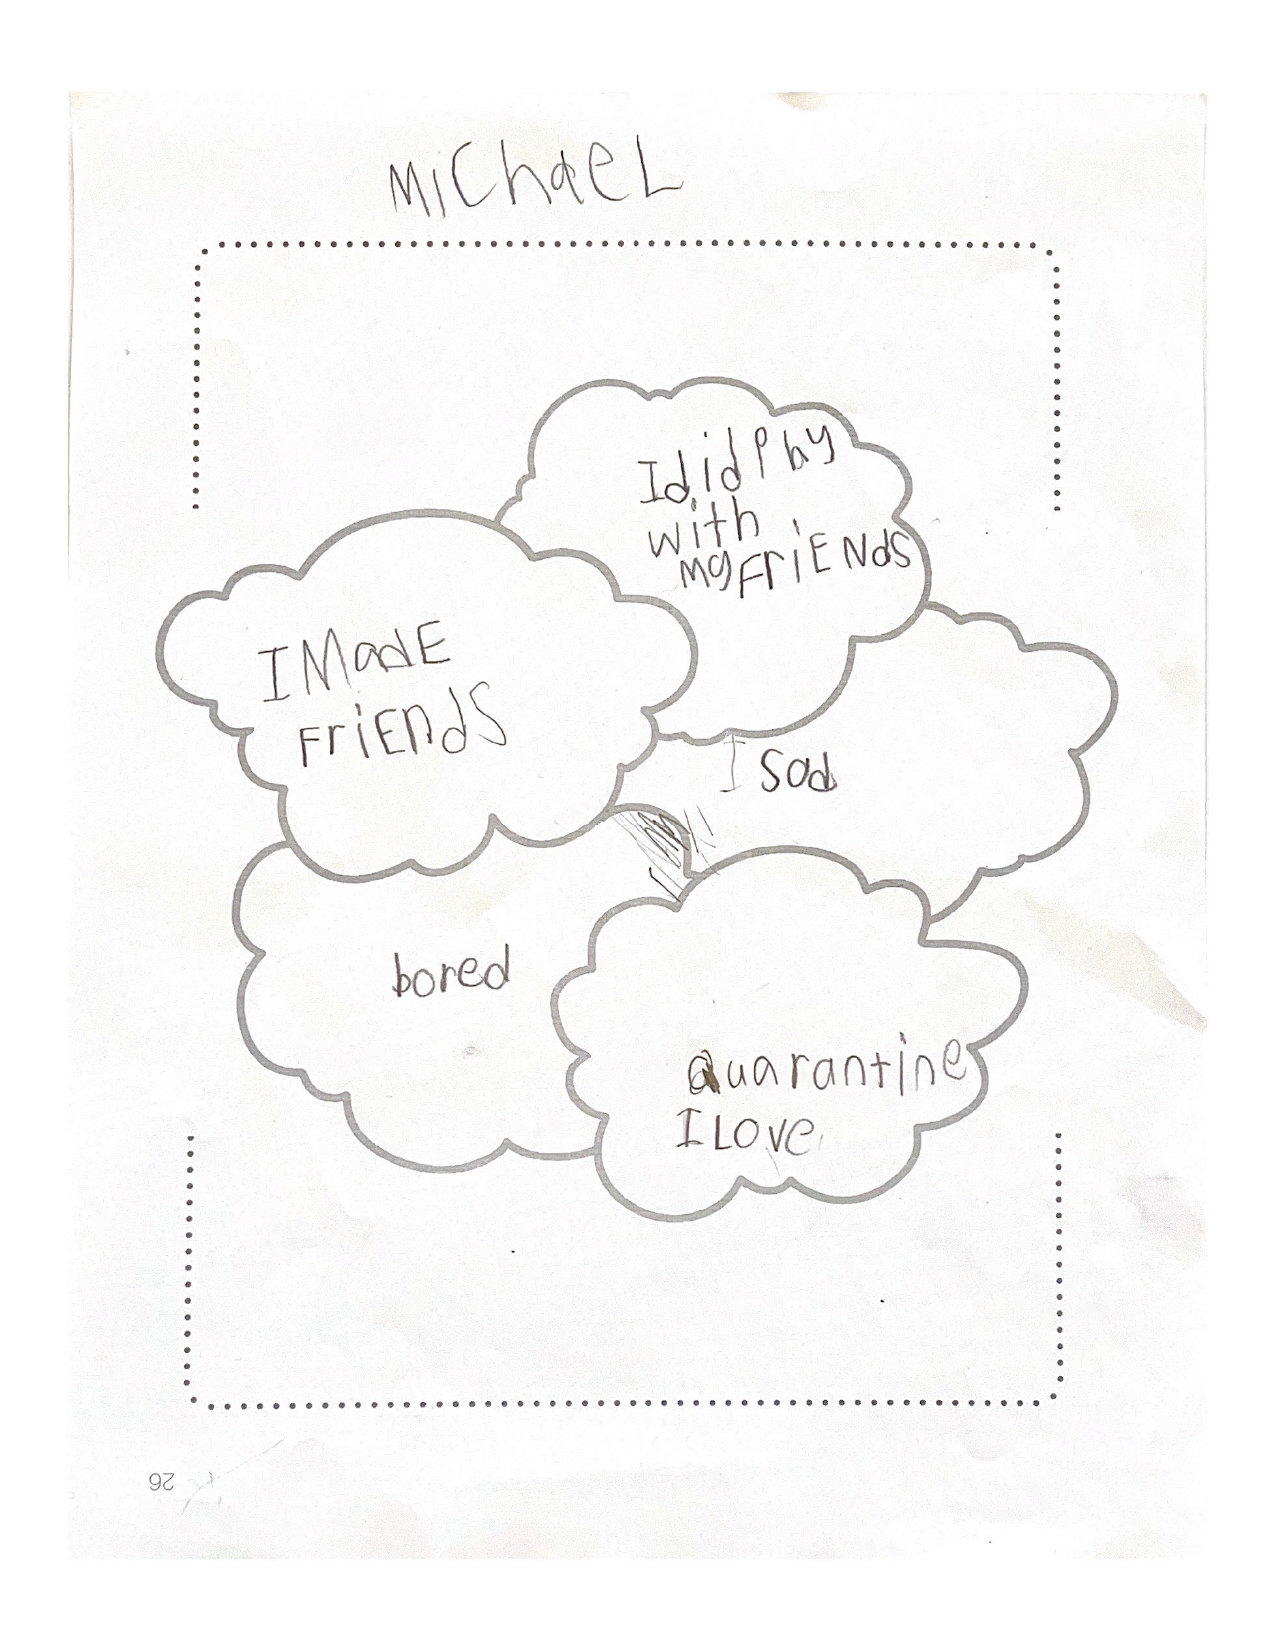 MIChaeL
I did Play
with
my FriENds
I MadE
FriEndS
I sad
bored
Quarantine
I LOVe
26